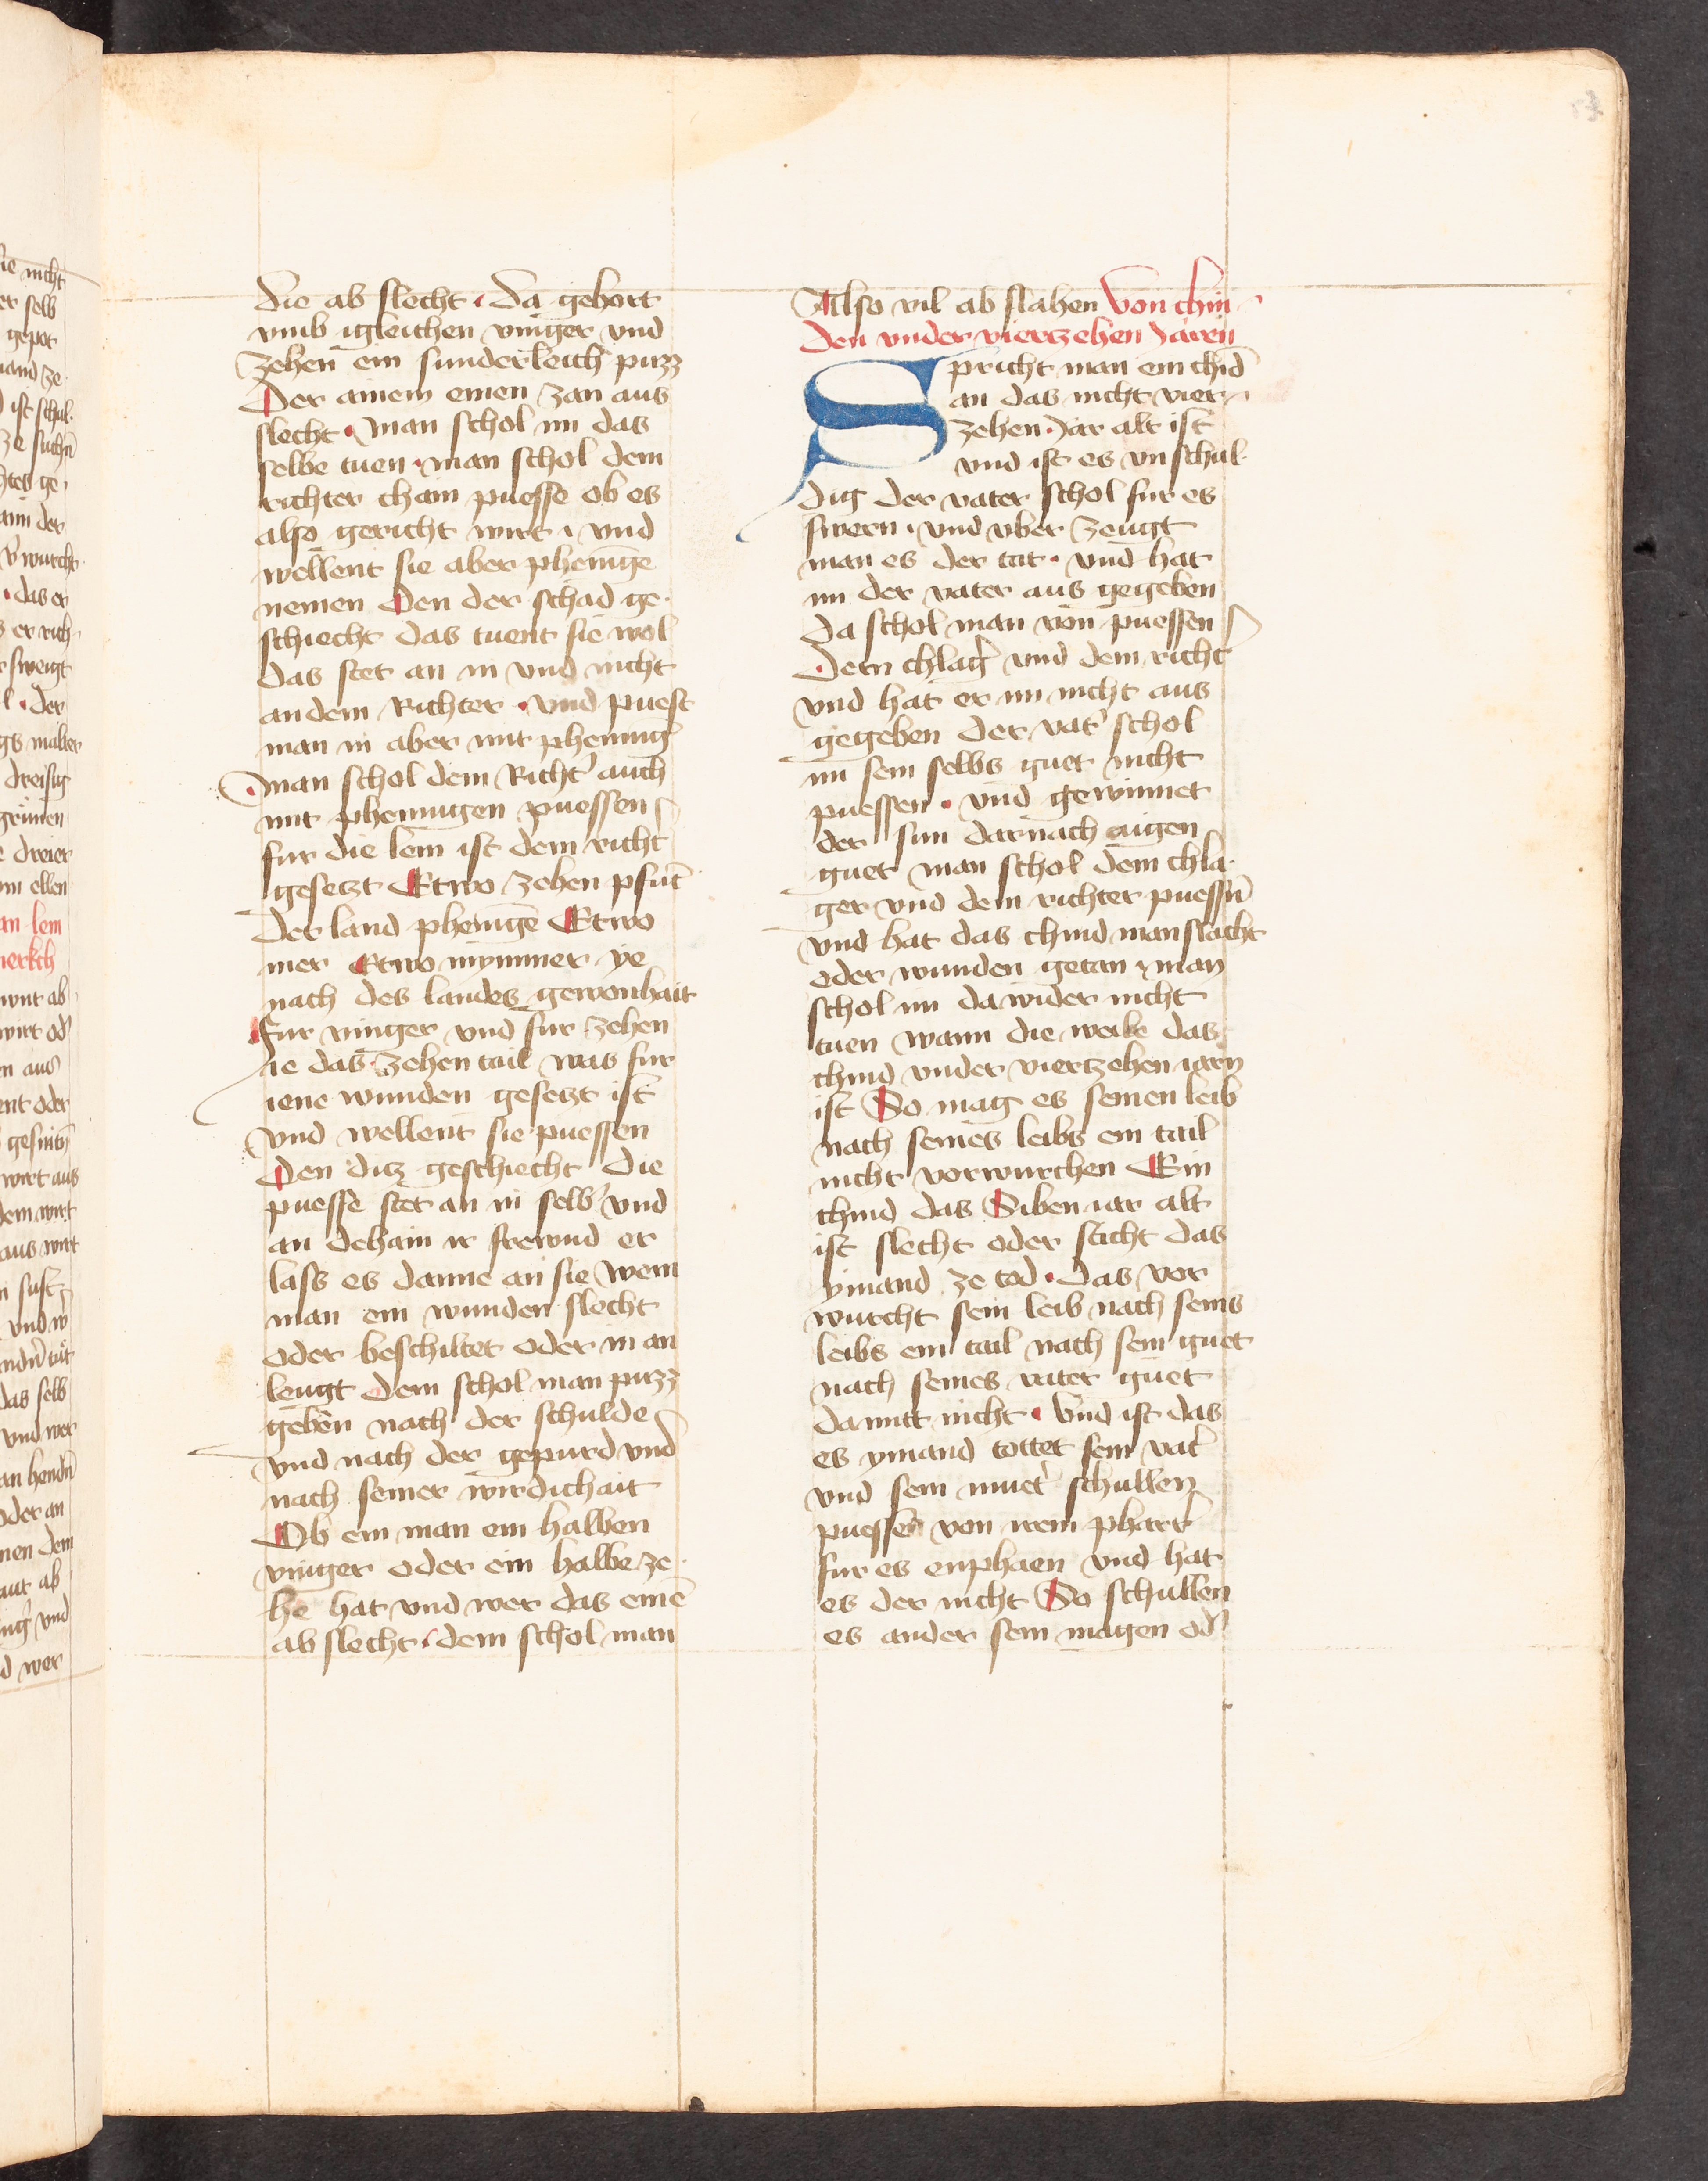 die ab slecht · da gehort
vmb igleichen vinger vnd
zehen ein sunderleich puzz
Der ainem einen zan aus
slecht · man schol im das
selbe tuen · man schol dem
richter chain puesse ob es
also gericht wirt · vnd
wellent sie aber phenīge
nemen Den der schad ge·
schiecht das tuent sie wol
das stet an in vnd nicht
an dem Richter · vnd puest
man in aber mit phening̉
man schol dem Richt̉ auch
mit phennigen puessen
fur die lem ist dem richt̉
gesetzt Etwo zehen pfūt
der land phenīge Etwo
mer Etwo mynnner ye
nach des landes gewonhait
fur vinger vnd fur zehen
ie das zehen tail was fur
iene wunden gesetzt ist
vnd wellent sie puessen
Den ditz geschiecht die
puesse stet an in selb̉ vnd
an dehain ir frewnd er
lass es danne an sie Wem
man ein wunden slecht
oder beschiltet oder in an
leugt dem schol man puzz
geben nach der schulde
vnd nach der gepurd vnd
nach seiner wirdichait
Ob ein man ein halben
vinger oder ein halbe ze·
he hat vnd wer das einē
ab slecht · dem schol man
Also vil ab slahen Von chin·
den vnder vierzehen Jaren
Spricht man ein chīd
an das nicht vier·
zehen Jar alt ist
vnd ist es vnschul·
dig der vater schol fur es
swern · vnd vber zeugt
man es der tat · vnd hat
im der vater aus gegeben
da schol man von puessen
dem chlag̉ vnd dem richt̉
vnd hat er im nicht aus
gegeben der vat̉ schol
im sein selbs guet nicht
puessen · vnd gewinnet
der sun darnach aigen
guet man schol dem chla·
ger vnd dem richter puessn̄
vnd hat das chind manslacht
oder wunden getan · man
schol im da wider nicht
tuen wann die weile das
chind vnder vierzehen iarn
ist So mag es seinen leib
nach seines leibs ein tail
nicht vorwurchen Ein
chind das Siben iar alt
ist slecht oder sticht das
ymand ze tod · das vor
wurcht sein leib nach seins
leibs ein tail nach sein guet
nach seines vater guet
damitt nicht · Vnd ist das
es ymand tottet sein vat̉
vnd sein muet̉ schullen
puesse von irem pharr̉
fur es enphaen vnd hat
es der nicht So schullen
es ander sein magen od̉